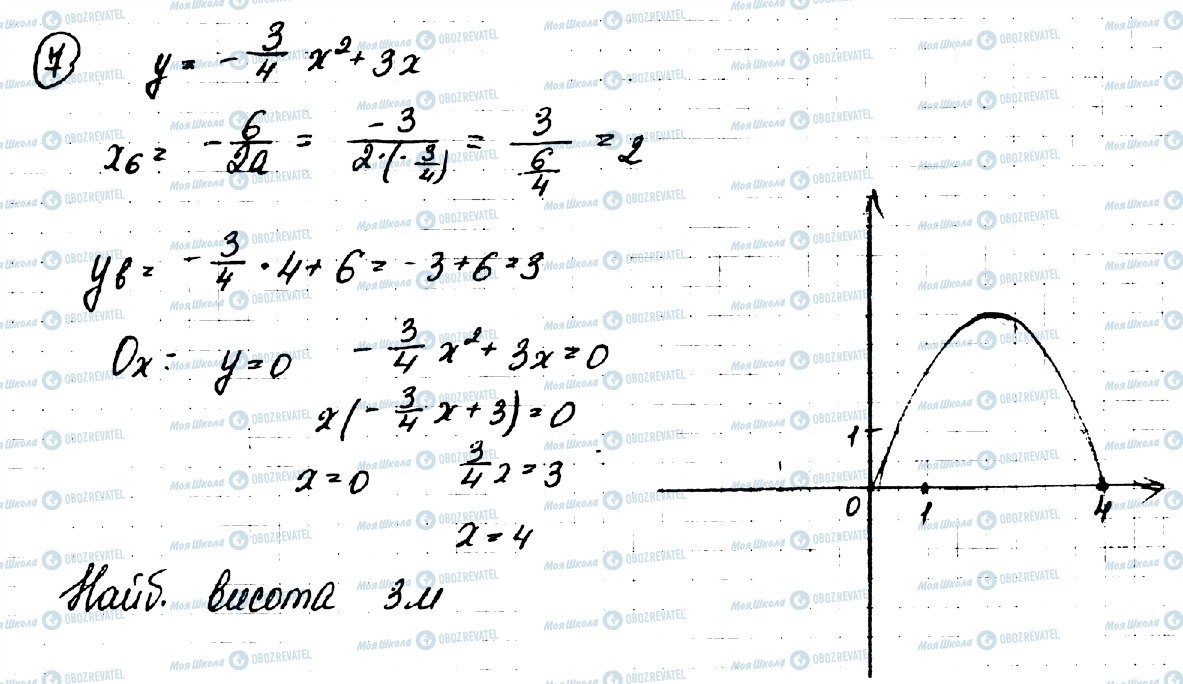 7 y = - 3/4 x² + 3x
xв = - б/2a = -3/(2·(-3/4)) = 3/(6/4) = 2
yв = - 3/4 · 4 + 6 = -3 + 6 = 3
Ox: y = 0 - 3/4 x² + 3x = 0
x(- 3/4 x + 3) = 0
x = 0 3/4 x = 3
x = 4
Найб. висота 3м
1
0 1 4
Моя Школа OBOZREVATEL